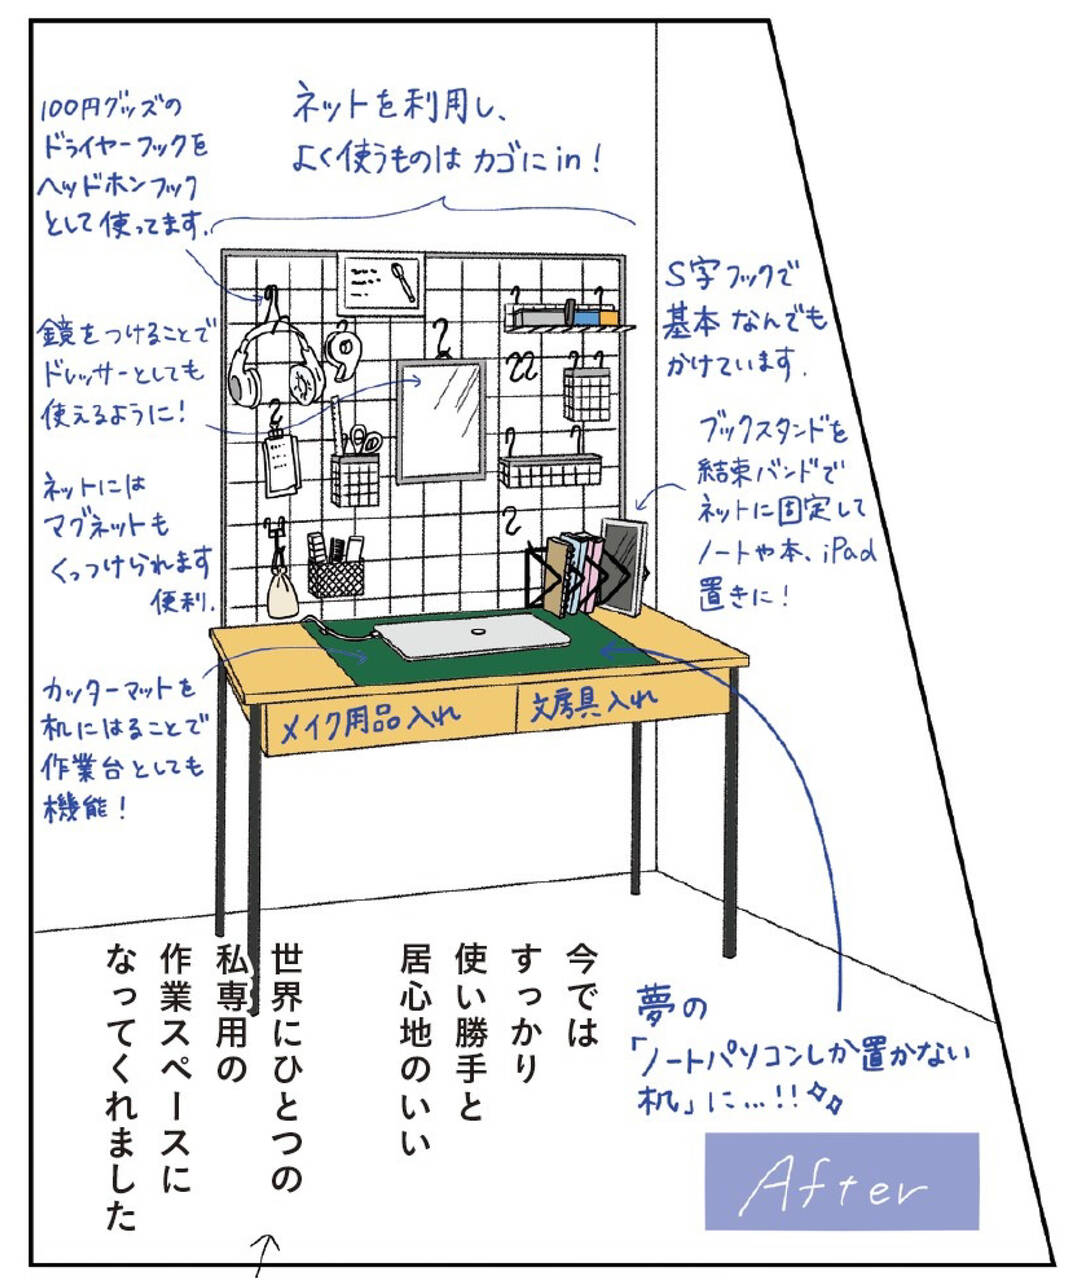 100円グッズの
ドライヤーフックを
ヘッドホンフック
として使ってます.
ネットを利用し、
よく使うものはカゴにin!
鏡をつけることで
ドレッサーとしても
使えるように!
S字フックで
基本なんでも
かけています.
ネットには
マグネットも
くっつけられます
便利.
ブックスタンドを
結束バンドで
ネットに固定して
ノートや本、iPad
置きに!
カッターマットを
机にはることで
作業台としても
機能!
メイク用品入れ
文房具入れ
今では
すっかり
使い勝手と
居心地のいい
世界にひとつの
私専用の
作業スペースに
なってくれました
夢の
「ノートパソコンしか置かない
机」に…!!
After